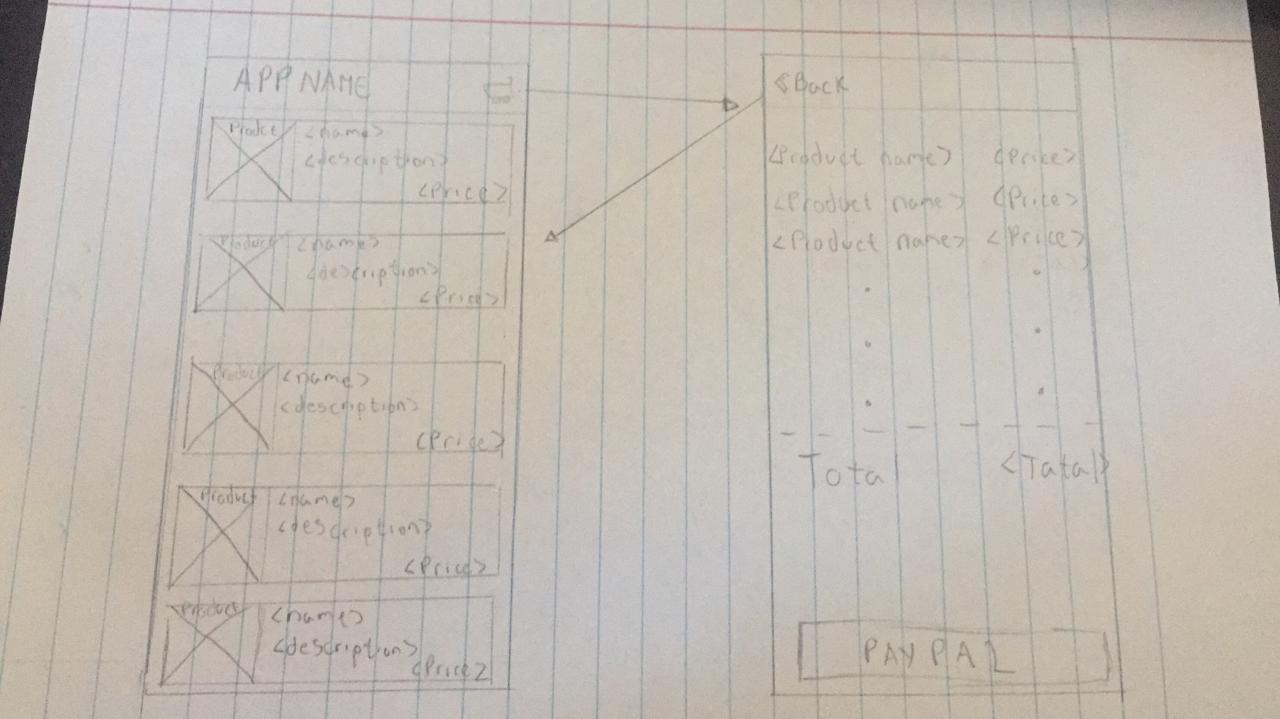 APP NAME
Product
<name>
<description>
<Price>
Product
<name>
<description>
<Price>
Product
<name>
<description>
<Price>
Product
<name>
<description>
<Price>
Product
<name>
<description>
<Price>
<Back
<Product name> <Price>
<Product name> <Price>
<Product name> <Price>
Total <Tatal>
PAYPAL